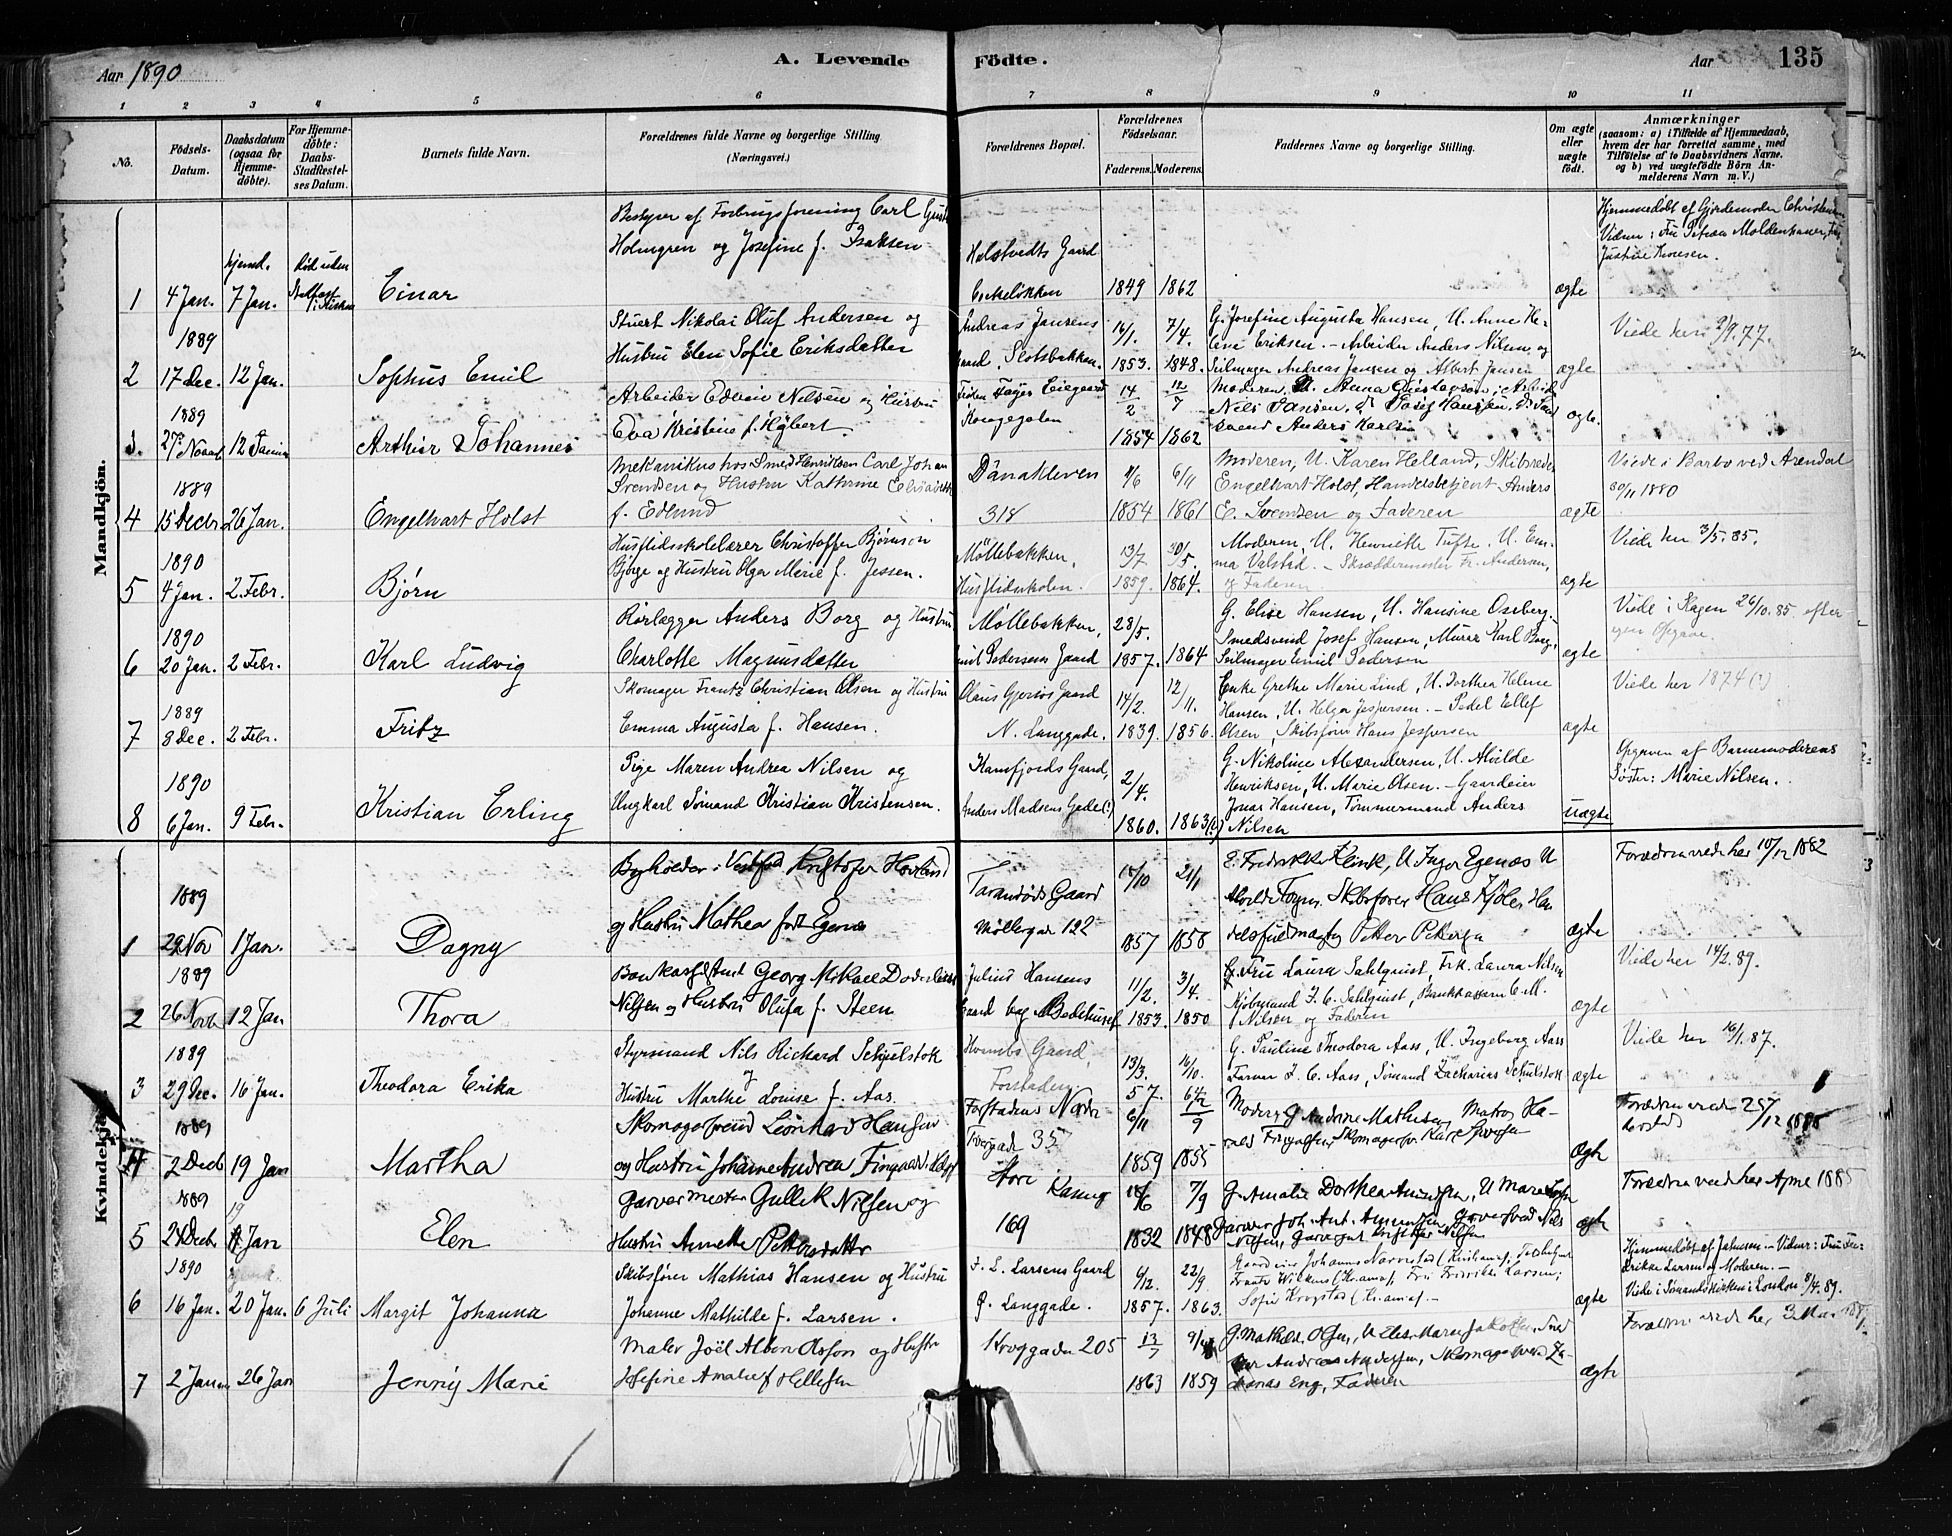 Aar 1890
A. Levende Födte.
Aar 135
1 2 3 4 5 6 7 8 9 10 11
No.
Födsels-Datum.
Daabsdatum (ogsaa for Hjemme-döbte).
For Hjemme-döbte: Daabs-Stadfæstel-ses Datum.
Barnets fulde Navn.
Forældrenes fulde Navne og borgerlige Stilling (Næringsvei.)
Forældrenes Bopæl.
Forældrenes Födselsaar.
Faderens. Moderens.
Faddernes Navne og borgerlige Stilling.
Om ægte eller uægte födt.
Anmærkninger
(saasom: a) i Tilfælde af Hjemmedaab, hvem der har forrettet samme, med Tilföielse af to Daabsvidners Navne, og b) ved uægtefödte Börn An-melderens Navn m. V.)
Mandkjön.
Bestyrer af Forbrugsforening Carl
Holmgren og Josefine f. Isaksen
Holstvedts Gaard
Hjemmedøbt af Gjordemoder
Vidner: Fru Moldenhauer,
Justine
1 4 Jan. hjemd. 7 Jan. Død uden Einar 1849 1862 ægte
1889
Stuert Nikolai Oluf Andersen og
Hustru Elen Sofie Eriksdatter
Andreas Jansens
Gaard, Slotsbakken.
16/1. 7/4.
G. Josefine Augusta Hansen, U. Anne He-
lene Eriksen. - Arbeider Anders Nilsen og
Seilmager Andreas Jansen og Albert Jansen
Viede her 2/9.77.
2 17 Dec. 12 Jan. Sophus Emil 1853. 1848. ægte
1889
Arbeider Edvin Nilsen og Hustru
Eva Kristine f. Høbert.
Kongegaten
14/2 12/7
Moderen, U. Anna Gustavsen, Arbeid
Nils Jansen,
svend Anders Karlsen
3. 27 Novbr 12 Januar Arthur Johannes 1854 1862 ægte.
1889
Mekanikus hos Smed Henriksen Carl Johan
Svendsen og Hustru Kathrine Elisabeth
f. Edlund
Danakleven
318
4/6 6/11
Moderen, U. Karen Helland, Skibsreder
Engelhart Holst, Handelsbetjent Anders
E. Svendsen og Faderen
Viede i Barbo ved Arendal
30/11 1880
4 15 Decbr 26 Jan. Engelhart Holst 1854 1861 ægte
1890
Husflidsskolelærer Christoffer Bjørnsen
Bjørge og Hustru Olga Marie f. Jessen.
Møllebakken,
Husflidsskolen
13/7 30/5.
Moderen, U. Henriette Tufte, U. Em-
ma Valstad. - Skræddermester Fr. Andersen,
og Faderen
Viede her 3/5.85.
5 4 Jan. 2. Febr. Bjørn 1859. 1864. ægte
1890
Rørlægger Anders Borg og Hustru
Charlotte Magnusdatter
Møllebakken,
Emil Pedersens Gaard
28/5.
G. Elise Hansen, U. Hansine Oseberg.
Smedsvend Josef Hansen, Murer Karl Borg,
Seilmager Emil Pedersen
Viede i Slagen 26/10.85. efter
egen Opgave.
6 20 Jan. 2 Febr. Karl Ludvig 1857. 1864 ægte
1889
Skomager Frantz Christian Olsen og Hustru
Emma Augusta f. Hansen.
Olaus Gjersøs Gaard
N. Langgade.
14/2. 12/11.
Enke Grethe Marie Lind, U. Dorthea Helene
Hansen, U. Helga Jespersen. - Pedel Ellef
Olsen, Skibsfører Hans Jespersen
Viede her 1874 (?)
7 8 Dec. 2 Febr. Fritz 1839. 1856. ægte
1890
Pige Maren Andrea Nilsen og
Ungkarl Sømand Kristian Kristensen.
Kamfjords Gaard,
Anders Madsens Gade(?)
2/4.
G. Nikoline Alexandersen, U. Alvilde
Henriksen, U. Marie Olsen. - Gaardeier
Jonas Hansen, Tømmermand Anders
Nilsen
Opgaven af Barnemoderens
Søster: Marie Nilsen.
8 6 Jan. 9 Febr. Kristian Erling 1860. 1863(?) uægte
Kvindekjön.
1889
Bogholder i Vestfold Kristofer Hovland
og Hustru Mathea født Egenæs
Taranrøds Gaard
Møllegade 122
15/10 21/1
E. Fredrikke Klink, U Inger Egenæs U
Skibsfører Hans Kjøler Han
delsfuldmægtig Petter Petersen
Forældrene viede her 10/12 1882
1 29 Nov 1 Jan. Dagny 1857 1858 ægte
1889
Bankassistent Georg Mikael
Nilsen og Hustru Olufa f. Steen
Julius Hansens
Gaard bag Bedehuset
11/2. 3/4.
G. Fru Laura Sahlquist, Frk. Laura Nilsen
Kjøbmand F. C. Sahlquist, Bankkasserer C. M.
Nilsen og Faderen
Viede her 14/2.89.
2 26 Novbr 12 Jan Thora 1853. 1850 ægte
1889
Styrmand Nils Richard Schjulstok
og
Hustru Marthe Louise f. Aas.
Gaard,
Forstaden
13/3. 16/10.
G. Pauline Theodora Aass, U. Ingeborg Aass
Farver J. C. Aass, Sømand Zacharias Schulstok
Viede her 16/1.87.
3 29 Dec. 16 Jan. Theodora Erika 57. 64 ægte
1889
Skomagersvend Leonhard Hansen
og Hustru Johanne Andrea
Forstadens Nordre
Tvergade 35
6/11 12/9
Moderen, G Andrine Mathisen, Matros Ha-
Forældrene viede
4 2 Decb 19 Jan Martha 1859 1855 ægte
1889
Garvermester Gullik Nilsen og
Hustru Annette Pettersdatter
Store
169
18/6 7/9
G. Amalie Dorthea Amundsen, U Maren
Garver Joh. Ant. Amundsen, Garversvend Nils
Nilsen, Kristofer Nilsen
Forældrene viede her April 1885
5 24 Decbr 19 Jan Elen 1832 1848 ægte
1890
Skibsfører Mathias Hansen og Hustru
Johanne Mathilde f. Larsen.
F. L. Larsens Gaard
Ø. Langgade.
6/12. 22/9.
Gaardeier Johannes Narvestad (Kristiania),
Fru Fredrikke Larsen,
Sofie Krogstad (Kristiania). -
Hjemmedøbt af Johnsen. - Vidner: Fru Fre-
drikke Larsen og Moderen. -
Viede i Sømandskirken i London 8/4.89.
6 16 Jan. hjemd. 20 Jan. 6 Juli Margit Johanna 1857. 1863. ægte
Maler Joël Alben Olsson og Hustru
Josefine Amalie f Hellesen
Kroggaden 205
13/7
G. Mathilde Olsen, U Elise Marie Jakobsen,
Andreas Andersen, Skomagersvend Za-
karias Eng, Faderen
Forældrene viede her 3 Mai
7 2 Januar 26 Jan Jenny Marie 1863 1859 ægte